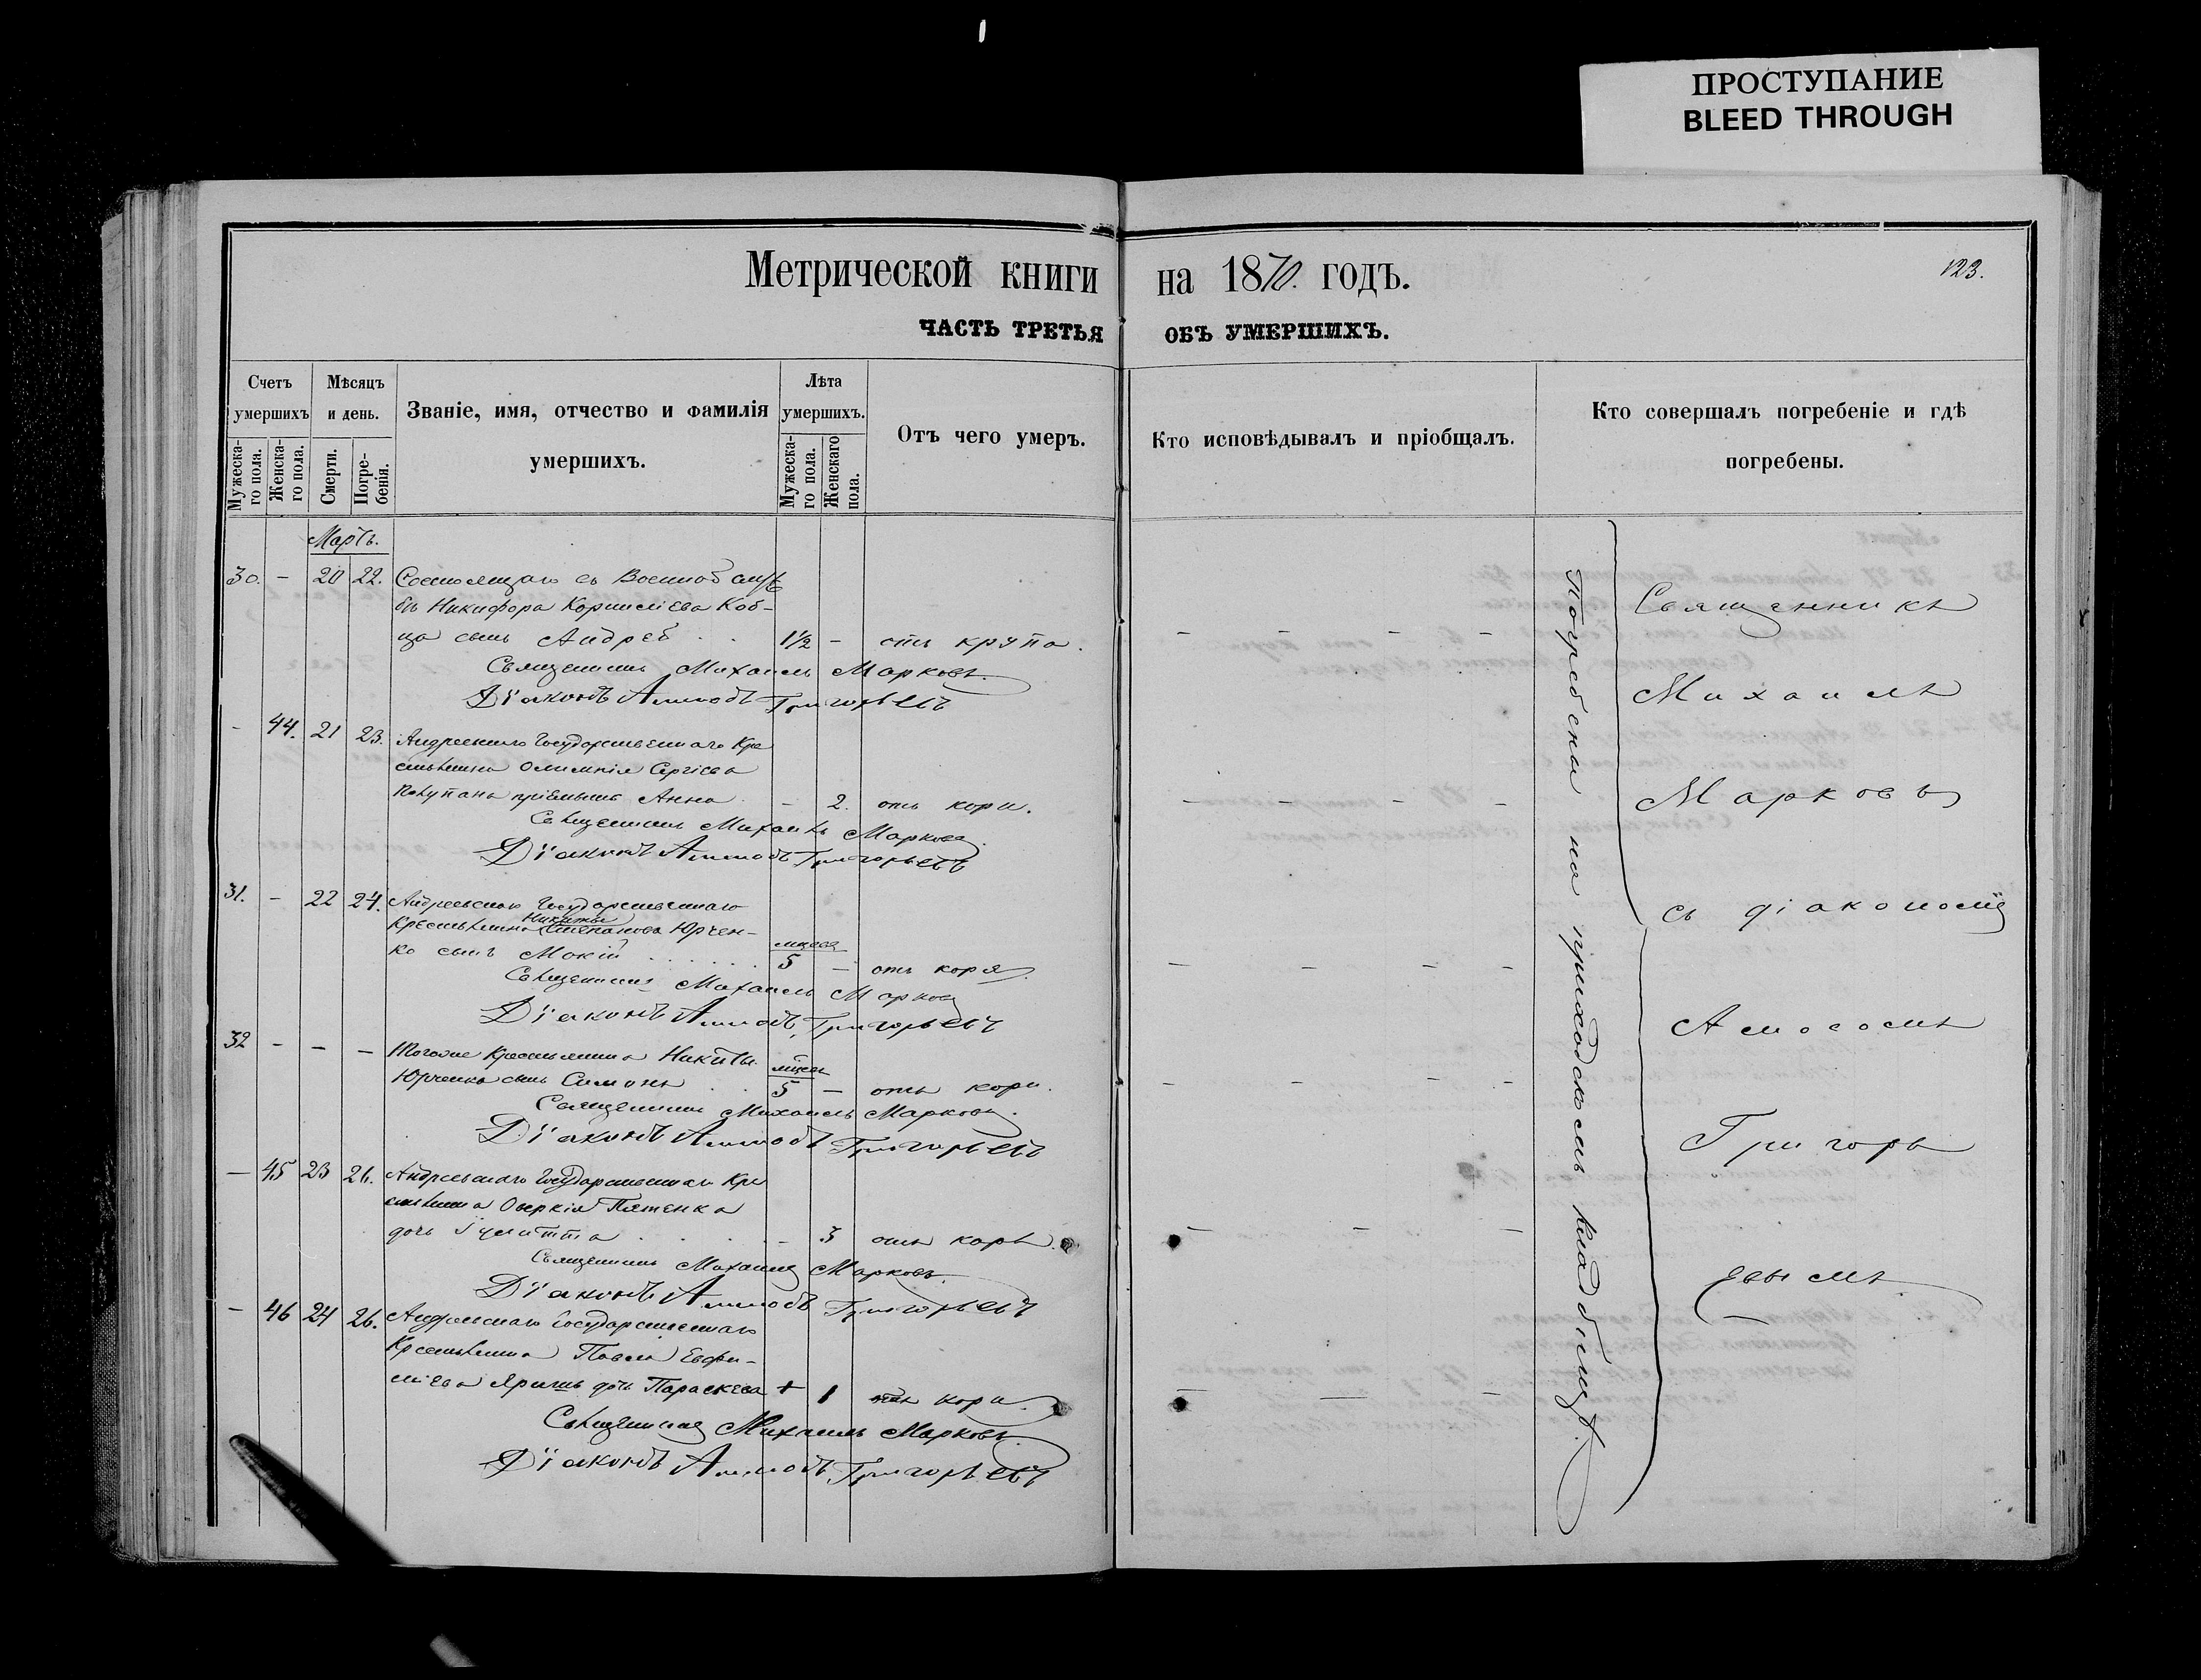 ПРОСТУПАНИЕ
BLEED THROUGH
Метрической книги на 1870. годъ.
123.
ЧАСТЬ ТРЕТЬЯ ОБЪ УМЕРШИХЪ.
Счетъ умершихъ
Мужеска-го пола.
Женска-го пола.
Мѣсяцъ и день.
Смерти.
Погре-бенія.
Званіе, имя, отчество и фамилія умершихъ.
Лѣта умершихъ.
Мужеска-го пола.
Женскаго пола.
Отъ чего умеръ.
Кто исповѣдывалъ и пріобщалъ.
Кто совершалъ погребеніе и гдѣ погребены.
Мартъ.
30. – 20 22. Состоящаго въ Военной служ
бѣ Никифора Корнилiева Коб-
ца сынъ Андрей . . 1½ – отъ крупа.
Священникъ Михаилъ Марковъ
Дiаконъ Григорьевъ
– 44. 21 23. Андреевскаго Государственнаго Кре
стьянина Сергiева
Анна – 2. отъ кори.
Священникъ Михаилъ Марковъ
Дiаконъ Григорьевъ
31. – 22 24. Андреевскаго Государственнаго
Никиты
Крестьянина Степанова Юрчен-
ко сынъ Мокiй мѣсяц. 5 – отъ кори.
Священникъ Михаилъ Марковъ
Дiаконъ Григорьевъ
32 – – – Тогоже Крестьянина Никиты
Юрченка сынъ Симонъ . . мѣсяц. 5 – отъ кори.
Священникъ Михаилъ Марковъ.
Дiаконъ Григорьевъ
– 45 23 26. Андреевскаго Государственнаго Кре
стьянина Оверкiя Пятенка
дочь Iулитта . . . – 3 отъ кори.
Священникъ Михаилъ Марковъ.
Дiаконъ Григорьевъ
– 46 24 26. Андреевскаго Государственнаго
Крестьянина Павла Евфи-
мiева Ярышъ дочь Параскева + 1 отъ кори.
Священникъ Михаилъ Марковъ.
Дiаконъ Григорьевъ
Погребены на приходскомъ кладбищѣ.
Священникъ
Михаилъ
Марковъ
съ дiакономъ
Григорь
евымъ